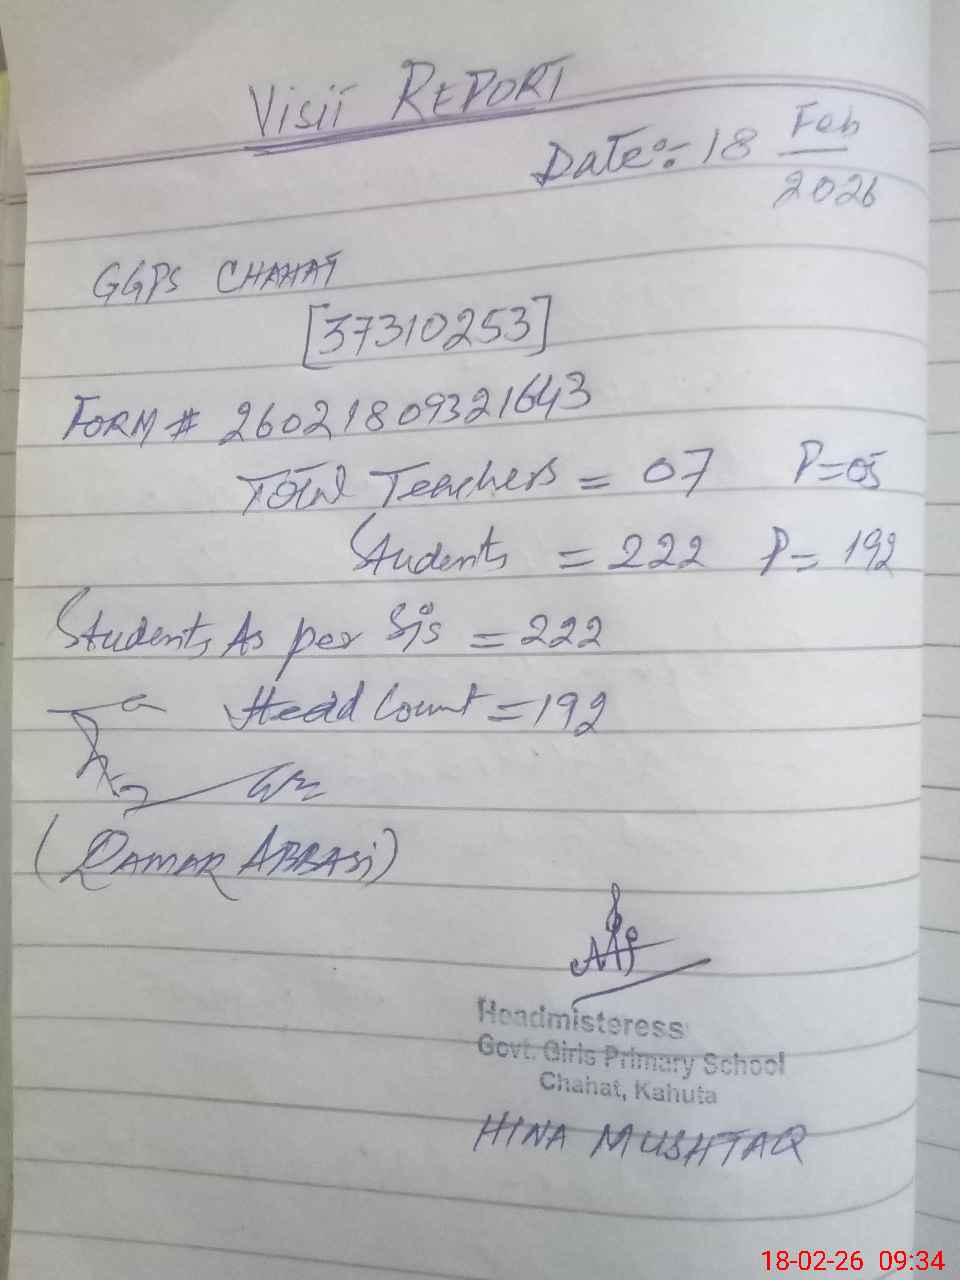 Visit REPORT
Date:- 18 Feb 2026
GGPS CHAHAT
[37310253]
FORM # 26021809321643
Total Teachers = 07 P=05
Students = 222 P= 192
Students As per Sis = 222
Head Count = 192
(QAMAR ABBASi)
Headmisteress
Govt. Girls Primary School
Chahat, Kahuta
HINA MUSHTAQ
18-02-26 09:34